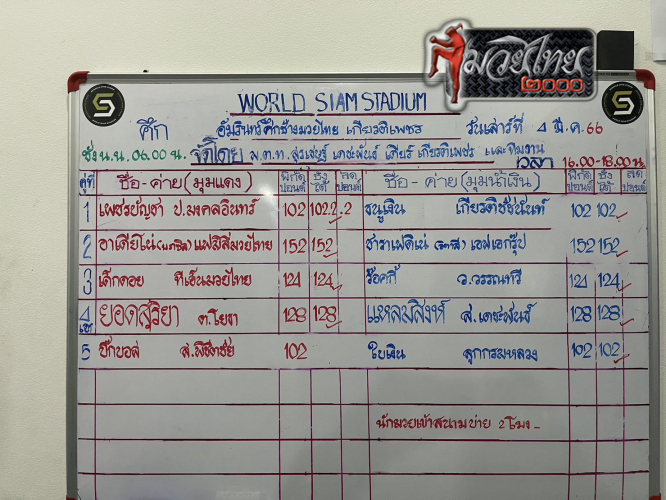 มวยไทย
๒๐๐๐
WORLD SIAM STADIUM
ศึก อัมรินทร์ศึกช้างมวยไทย เกียรติเพชร วันเสาร์ที่ 4 มี.ค.66
ชั่ง น.น. 06.00 น. จัดโดย พ.ต.ท. สุรเชษฐ์ เดชะพันธ์ เสี่ยร์ เกียรติเพชร และทีมงาน
เวลา 16.00-18.00 น.
คู่ที่ ชื่อ - ค่าย (มุมแดง) พิกัด ปอนด์ ชั่งได้ ลด ปอนด์ ชื่อ - ค่าย (มุมน้ำเงิน) พิกัด ปอนด์ ชั่งได้ ลด ปอนด์
1 เพชรบัญชา ป.มงคลอินทร์ 102 102.2 .2 ธนูเงิน เกียรติชัชนันท์ 102 102
2 อาเดียโน่ แฟมิลี่มวยไทย 152 152 ซาราเฟดิเน่ เอฟเอกรุ๊ป 152 152
3 เด็กดอย ทีเอ็นมวยไทย 124 124 ร็อคกี้ ว.วรรณทวี 124 124
4 เอก ยอดสุริยา ต.โยธา 128 128 แหลมสิงห์ ส.เดชะพันธ์ 128 128
5 บิ๊กบอส ส.พิชิตชัย 102 ใบเงิน ลูกกรมหลวง 102 102
นักมวยเข้าสนามบ่าย 2 โมง -